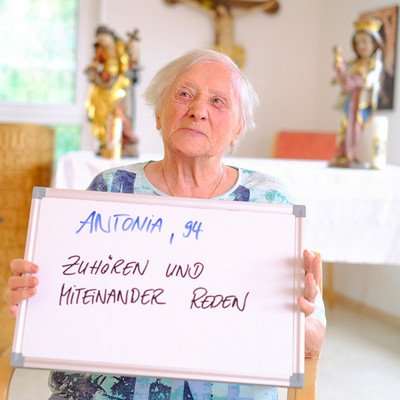 ANTONIA, 94
ZUHÖREN UND
MITEINANDER REDEN